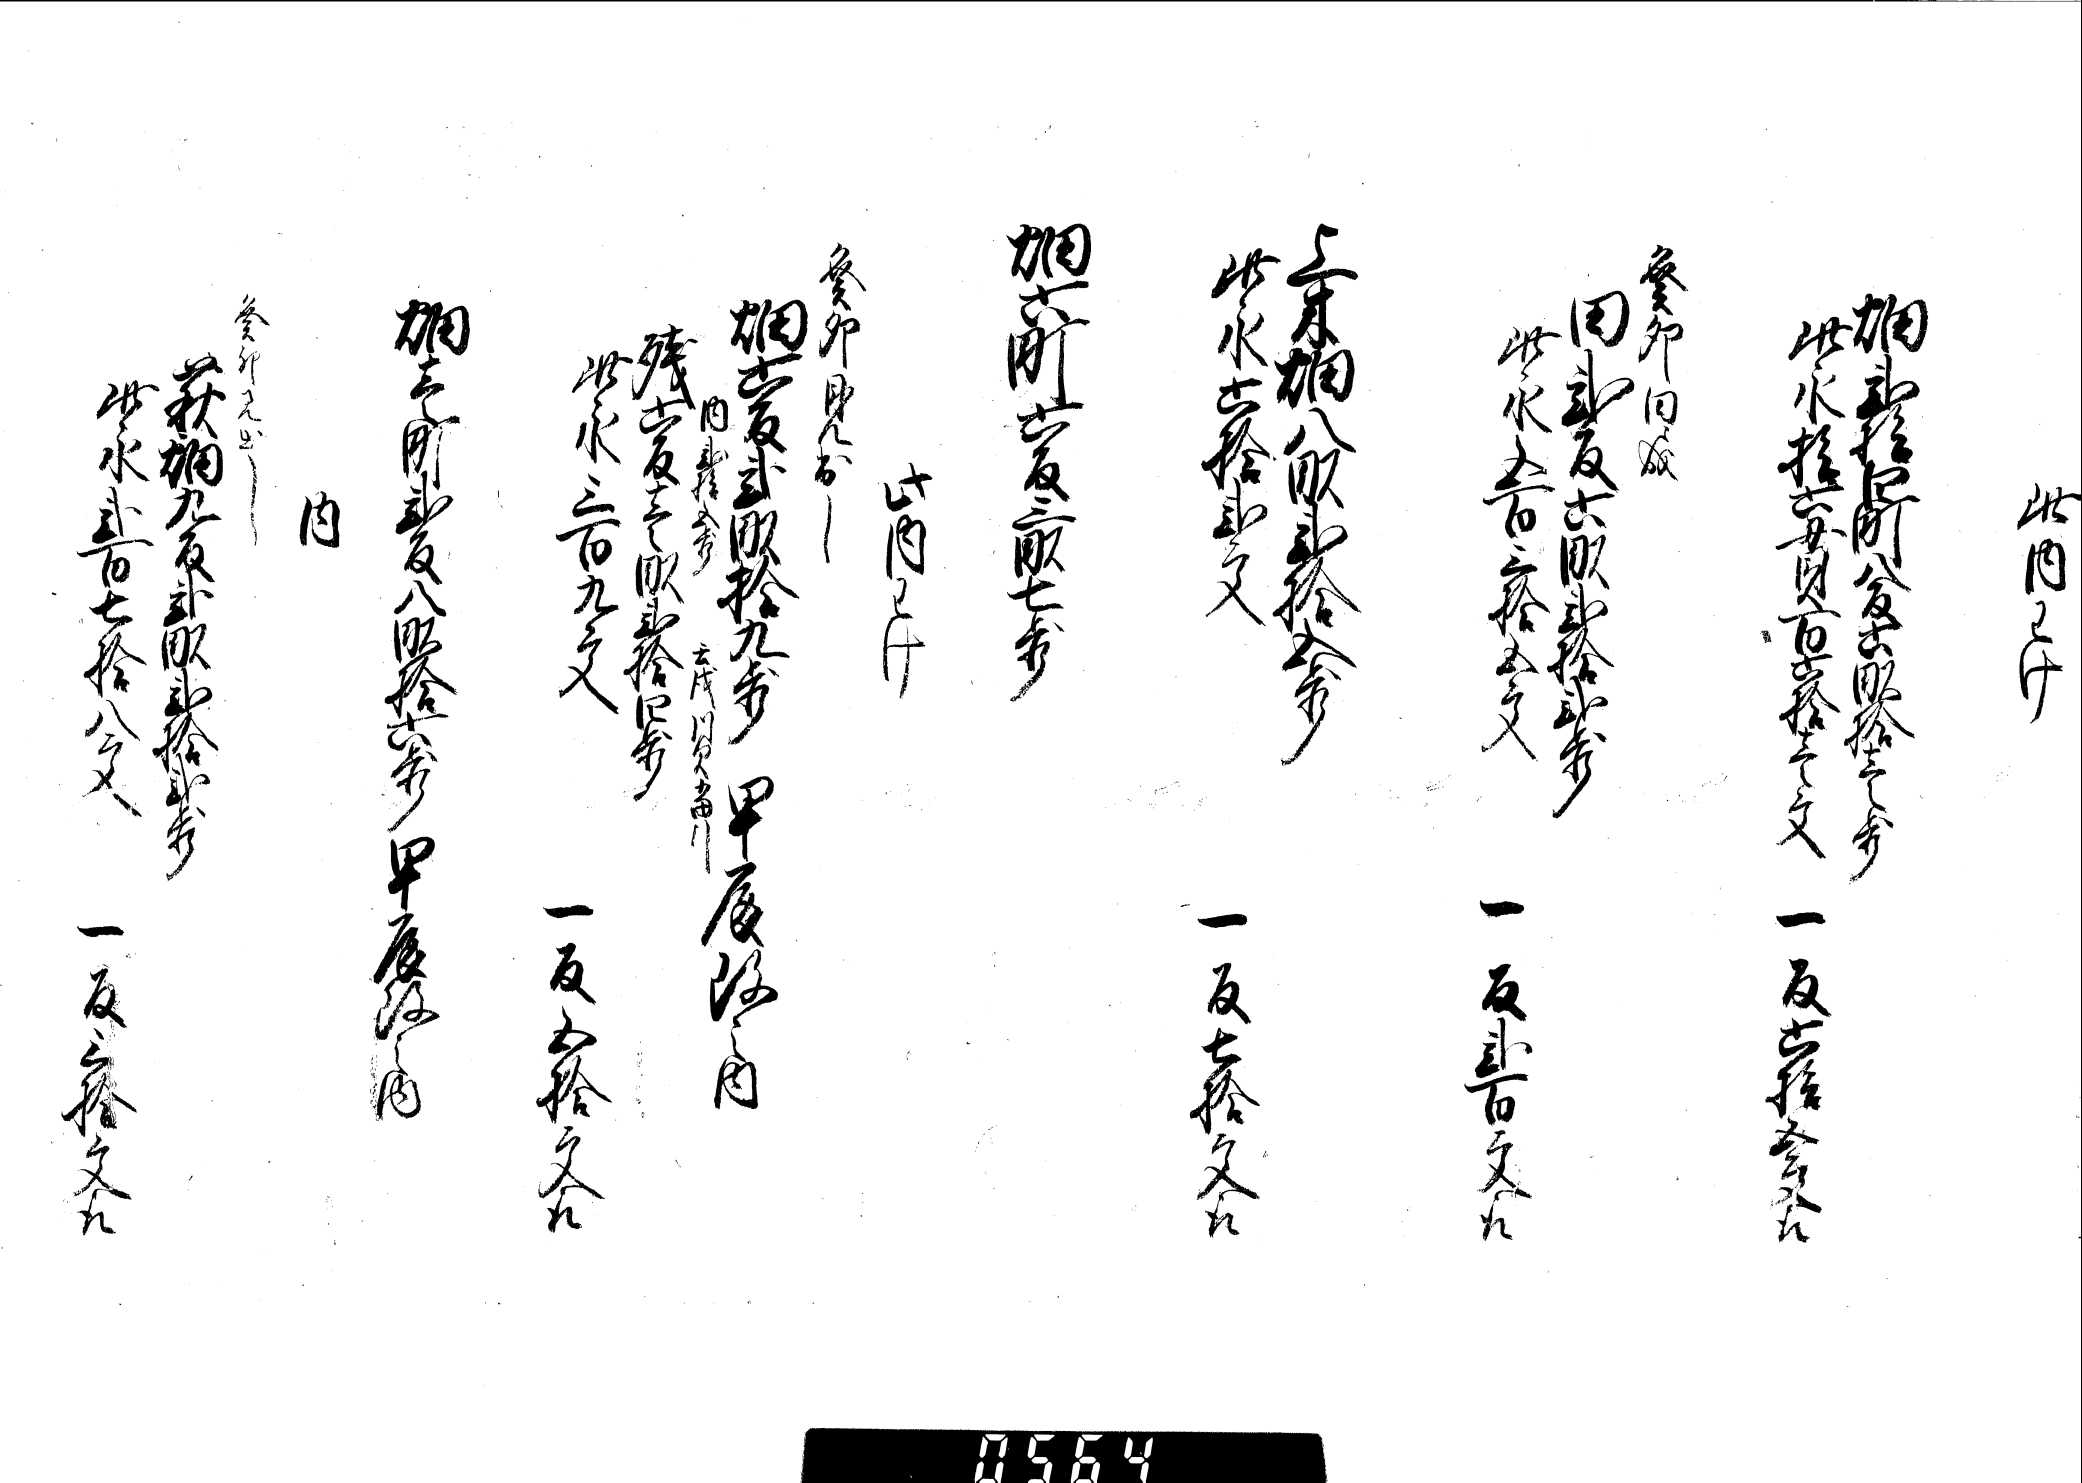 此内わけ
畑弐拾四町八反六畝拾壱歩
此永拾六貫百六拾壱文
一反六拾五文取
癸卯同成
田弐反六畝弐拾弐歩
此永五百三拾五文
一反弐百文取
上末畑八畝弐拾五歩
此永六拾弐文
一反七拾文取
畑六町六反三畝七歩
此内わけ
癸卯見出し
畑六反弐畝拾九歩 甲辰改之内
内弐拾五歩
残六反壱畝弐拾四歩
此永三百九文
一反五拾文取
畑壱町弐反八畝拾六歩 甲辰改之内
内
癸卯見出し
萩畑九反弐畝弐拾弐歩
此永弐百七拾八文
一反三拾文取